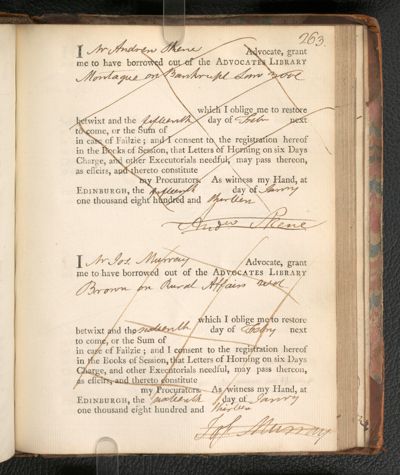 263
I Mr Andrew Skene Advocate, grant
me to have borrowed out of the ADVOCATES LIBRARY
Montague on Bankrupt Law 2 vol
which I oblige me to restore
betwixt and the fifteenth day of next
to come, or the Sum of
in case of Failzie; and I consent to the registration hereof
in the Books of Session, that Letters of Horning on six Days
Charge, and other Executorials needful, may pass thereon,
as effeirs, and thereto constitute
my Procurators. As witness my Hand, at
EDINBURGH, the fifteenth day of Janry
one thousand eight hundred and thirteen
Andw Skene
I Mr Jos. Murray Advocate, grant
me to have borrowed out of the ADVOCATES LIBRARY
Brown on Rural Affairs 2 vol
which I oblige me to restore
betwixt and the sixteenth day of next
to come, or the Sum of
in case of Failzie; and I consent to the registration hereof
in the Books of Session, that Letters of Horning on six Days
Charge, and other Executorials needful, may pass thereon,
as effeirs, and thereto constitute
my Procurators. As witness my Hand, at
EDINBURGH, the sixteenth day of Janry
one thousand eight hundred and thirteen
Jos Murray